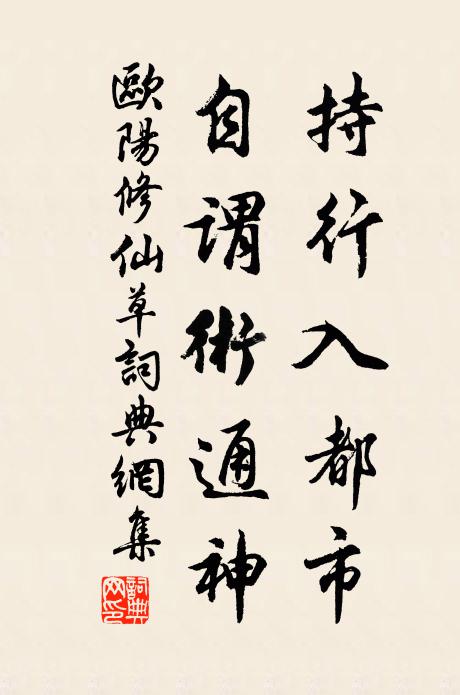 持行入都市
自謂術通神
歐陽修仙草詞典網集
詞典網印